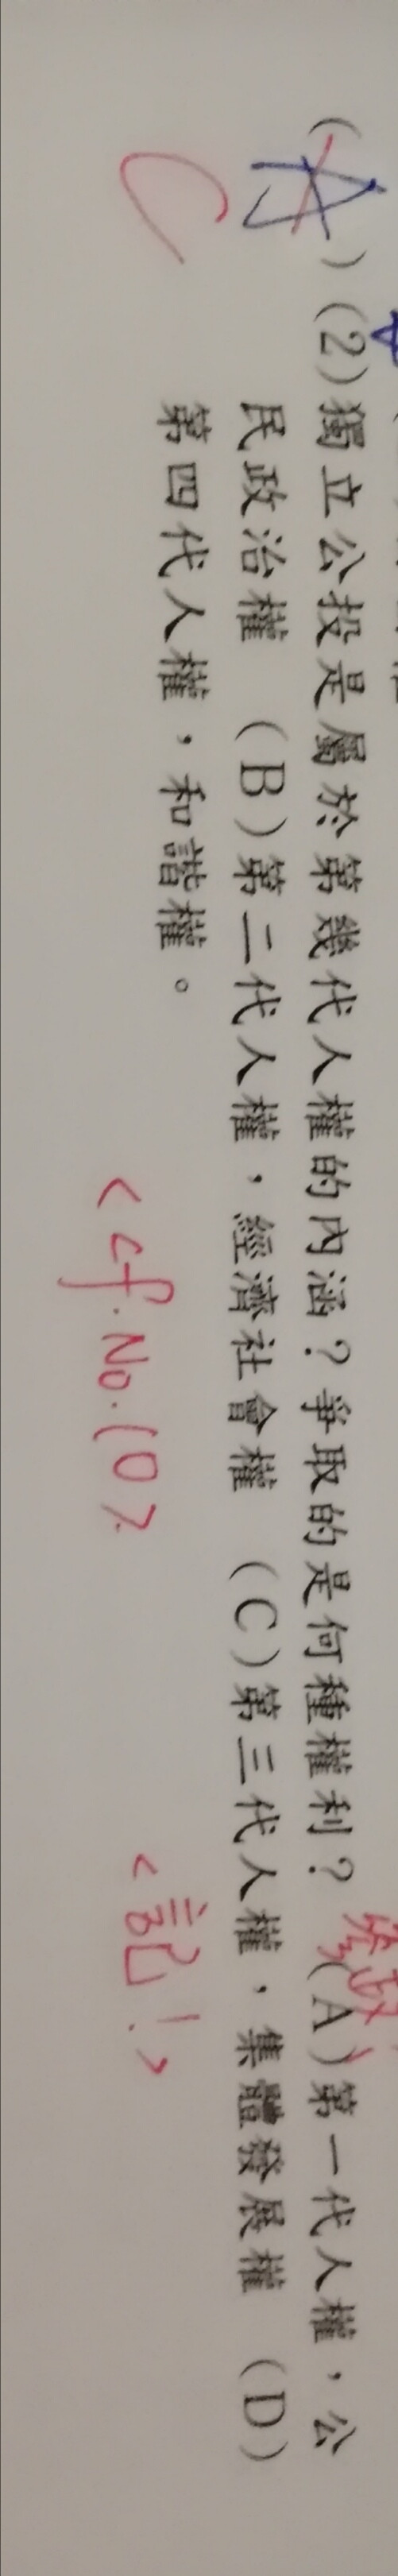 (A)(2)獨立公投是屬於第幾代人權的內涵？爭取的是何種權利？ (A)第一代人權，公
民政治權 (B)第二代人權，經濟社會權 (C)第三代人權，集體發展權 (D)
第四代人權，和諧權。
C
參政
<cf. No.(0>
<記!>